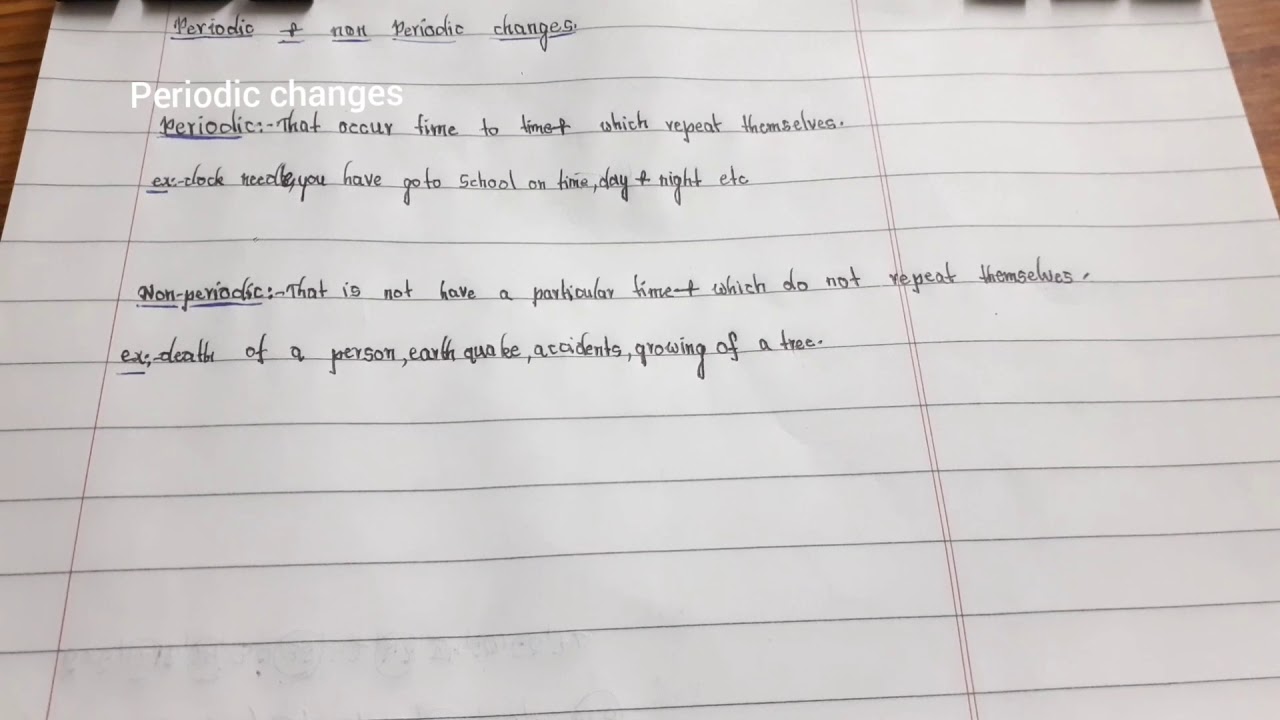 Periodic & non Periodic changes.
Periodic changes
Periodic:-That occur time to time & which repeat themselves.
ex:-clock needle, you have goto school on time, day & night etc
Non-periodic:-That is not have a particular time & which do not repeat themselves.
ex:-death of a person, earth quake, accidents, growing of a tree.